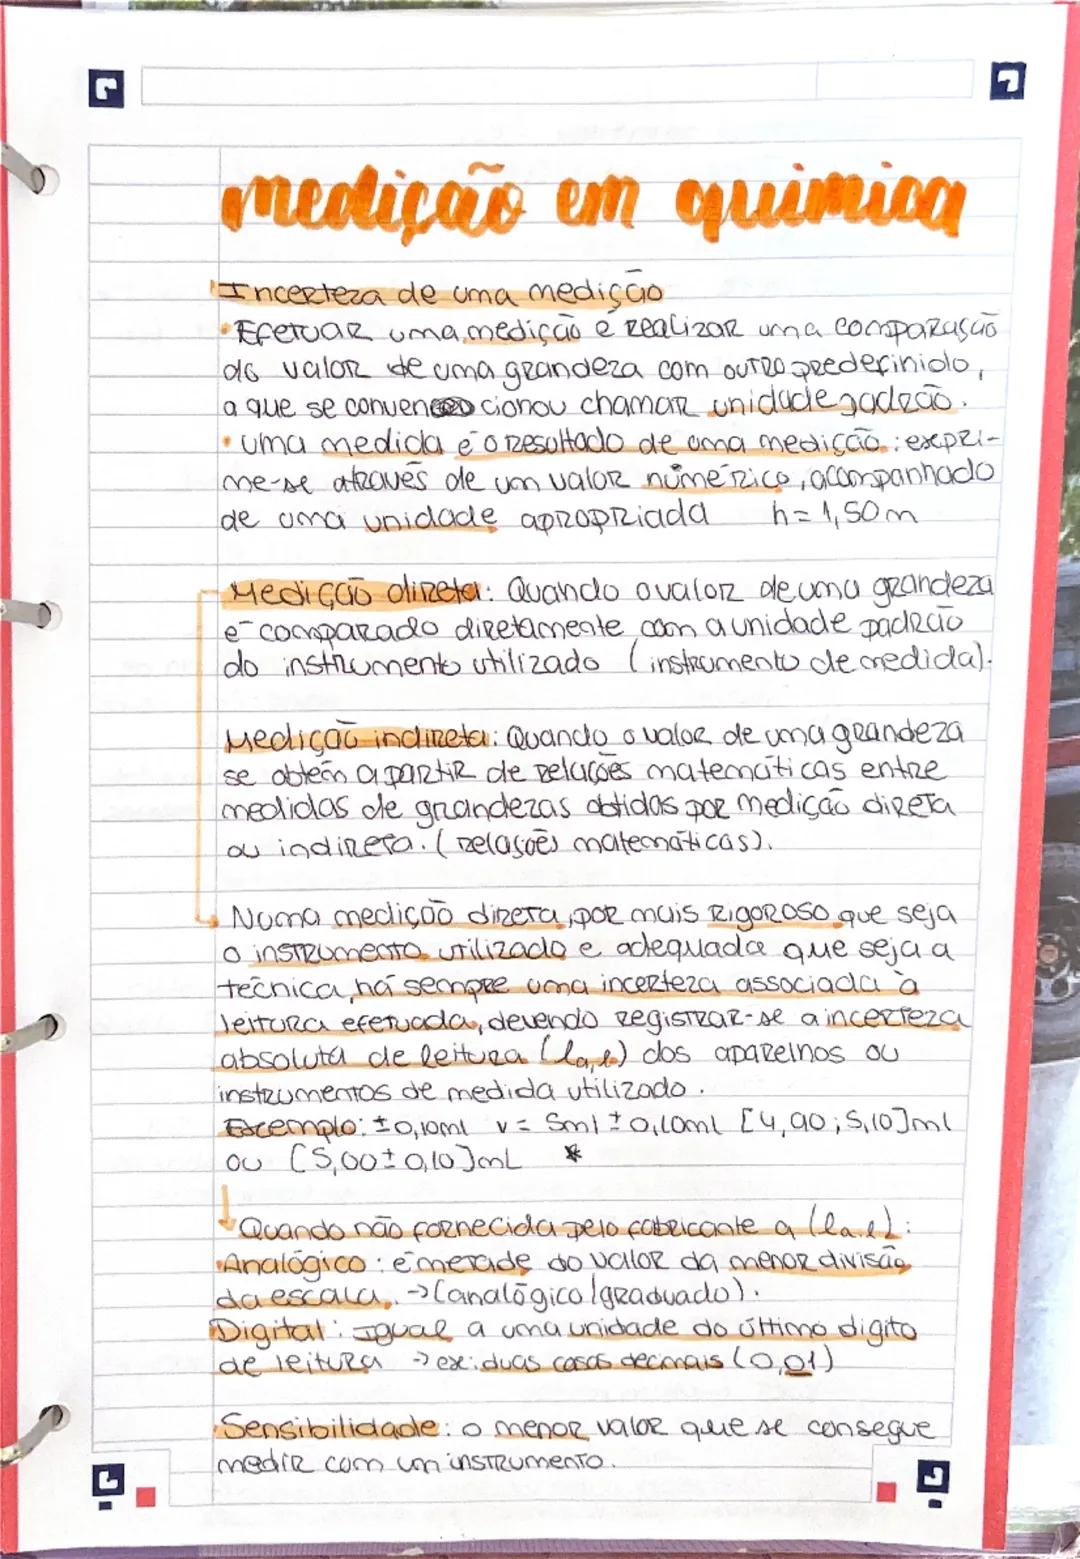 medição em quimica
Incerteza de uma medição
• Efetuar uma medição é realizar uma comparação
do valor de uma grandeza com outro predefinido,
a que se convencionou chamar unidade padrão.
• uma medida é o resultado de uma medição: expri-
me-se através de um valor númérico, acompanhado
de uma unidade apropriada h= 1,50m
Medição direta: Quando o valor de uma grandeza
é comparado diretamente com a unidade padrão
do instrumento utilizado (instrumento de medida).
Medição indireta: Quando o valor de uma grandeza
se obtém a partir de relações matemáticas entre
medidas de grandezas obtidas por medição direta
ou indireta. (relações matemáticas).
Numa medição direta, por mais rigoroso que seja
o instrumento utilizado e adequada que seja a
técnica, há sempre uma incerteza associada à
leitura efetuada, devendo registrar-se a incerteza
absoluta de leitura (Ia,l) dos aparelhos ou
instrumentos de medida utilizado.
Exemplo: ±0,10ml v= 5ml ± 0,10ml [4,90; 5,10]ml
ou [5,00±0,10]mL *
↓ Quando não fornecida pelo fabricante a (Ia,l):
• Analógico: é metade do valor da menor divisão
da escala. →(analógico/graduado).
Digital: Igual a uma unidade do último digito
de leitura → ex: duas casas decimais (0,01)
• Sensibilidade: o menor valor que se consegue
medir com um instrumento.